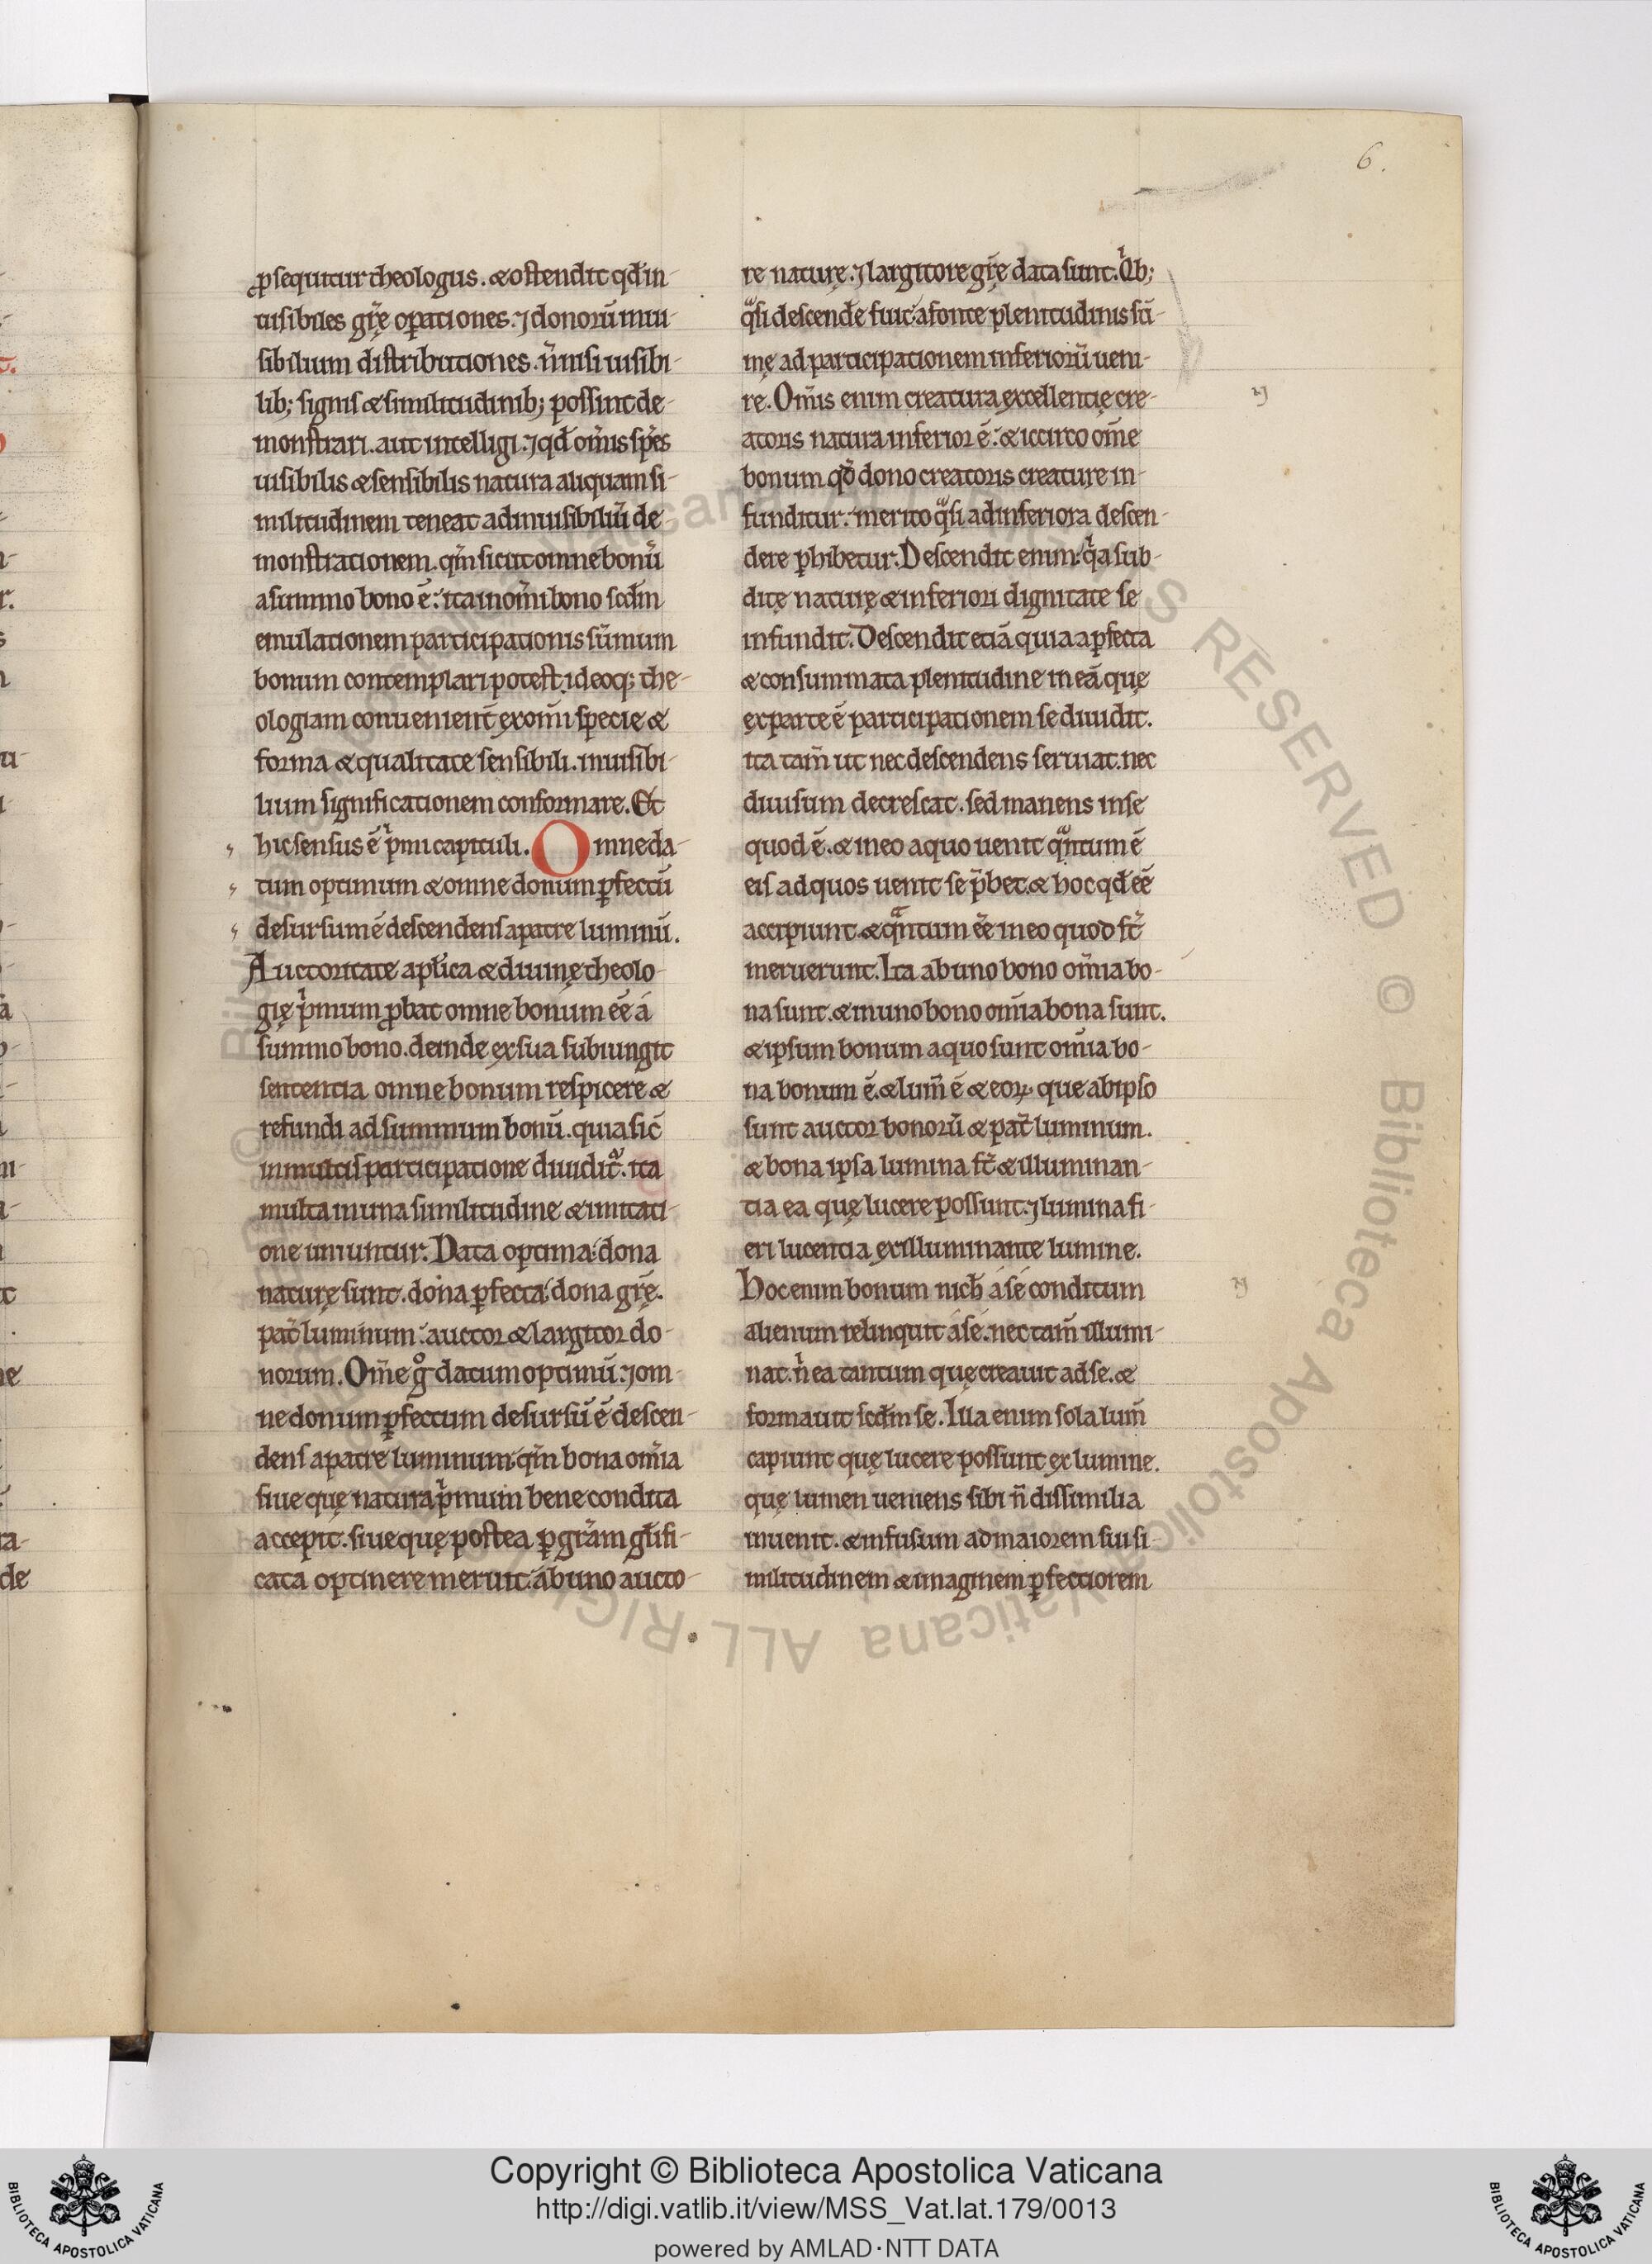 6.
ꝓsequitur theologus. ⁊ ostendit qđ in-
uisibiles gr̃ę oꝑationes. ⁊ donorū inui-
sibilium distributiones. ñ nisi uisibi-
lib; signis & similitudinib; possint de-
monstrari. aut intelligi. ⁊ qđ om̃is sp̃es
uisibilis & sensibilis natura aliquam si-
militudinem teneat ad inuisibiliū de-
monstrationem. qm̃ sicut omne bonū
a summo bono ē. ita in om̃i bono scd̃m
emulationem participationis sūmum
bonum contemplari potest. ideoq; the-
ologiam conuenient̄ ex om̃i specie &
forma & qualitate sensibili. inuisibi-
lium significationem conformare. Et
hic sensus ē pⁱmi capituli. Omne da-
tum optimum & omne donum ꝑfectū
desursum ē descendens a patre luminū.
Auctoritate apl̃ica & diuinę theolo-
gię pⁱmum ꝓbat omne bonum eē á
summo bono. deinde ex sua subiungit
sententia omne bonum respicere &
refundi ad summum bonū. quia sic̄
in multis participatione diuidit̃. ita
multa in una similitudine & imitati-
one uniuntur. Data optima: dona
naturę sunt. dona ꝑfecta: dona gr̃ę.
pat̃ luminum: auctor & largitor do-
norum. Om̃e gͦ datum optimū. ⁊ om-
ne donum ꝑfectum desursū ē descen-
dens a patre luminum. qm̃ bona om̃ia
siue quę natura pⁱmum bene condita
accepit. siue quę postea ꝑ gr̃am gl̃ifi-
cata optinere meruit. áb uno aucto-
re naturę. ⁊ largitore gr̃ę data sunt. Qⁱb;
qᵃsi descendẽ fuit: a fonte plenitudinis sū-
mę ad participationem inferiorū ueni-
re. Om̃is enim creatura excellentię cre-
atoris natura inferior ē. & iccirco om̃e
bonum qđ dono creatoris creature in-
funditur. merito qᵃsi ad inferiora descen-
dere ꝑhibetur. Descendit enim: qⁱa sub-
ditę naturę & inferiori dignitate se
infundit. Descendit etiā quia a ꝑfecta
& consummata plenitudine in eā quę
ex parte ē participationem se diuidit.
ita tam̃ ut nec descendens seruiat. nec
diuisum decrescat. sed manens in se
quod ē. & in eo a quo uenit qᵃntum ē
eis ad quos uenit se p̃bet. & hoc qđ eē
accipiunt. & qᵃntum eē in eo quod st̃
meruerunt. Ita ab uno bono om̃ia bo-
na sunt. & in uno bono om̃ia bona sunt.
& ipsum bonum a quo sunt om̃ia bo-
na bonum ē. & lum̃ ē & eoꝝ que ab ipso
sunt auctor bonorū & pat̃ luminum.
& bona ipsa lumina st̃ & illuminan-
tia ea quę lucere possunt. ⁊ lumina fi-
eri lucentia ex illuminante lumine.
Hoc enim bonum nich̃ á sé conditum
alienum relinquit á sé. nec tam̃ illumi-
nat. nⁱ ea tantum quę creauit ad se. &
formauit scd̃m se. Illa enim sola lum̃
capiunt quę lucere possunt ex lumine.
quę lumen ueniens sibi ñ dissimilia
inuenit. & infusum ad maiorem sui si-
militudinem & imaginem ꝑfectiorem
© Biblioteca Apostolica Vaticana ALL RIGHTS RESERVED © Biblioteca Apostolica Vaticana ALL RIGHTS RESERVED
Copyright © Biblioteca Apostolica Vaticana
http://digi.vatlib.it/view/MSS_Vat.lat.179/0013
powered by AMLAD·NTT DATA
BIBLIOTECA APOSTOLICA VATICANA
BIBLIOTECA APOSTOLICA VATICANA